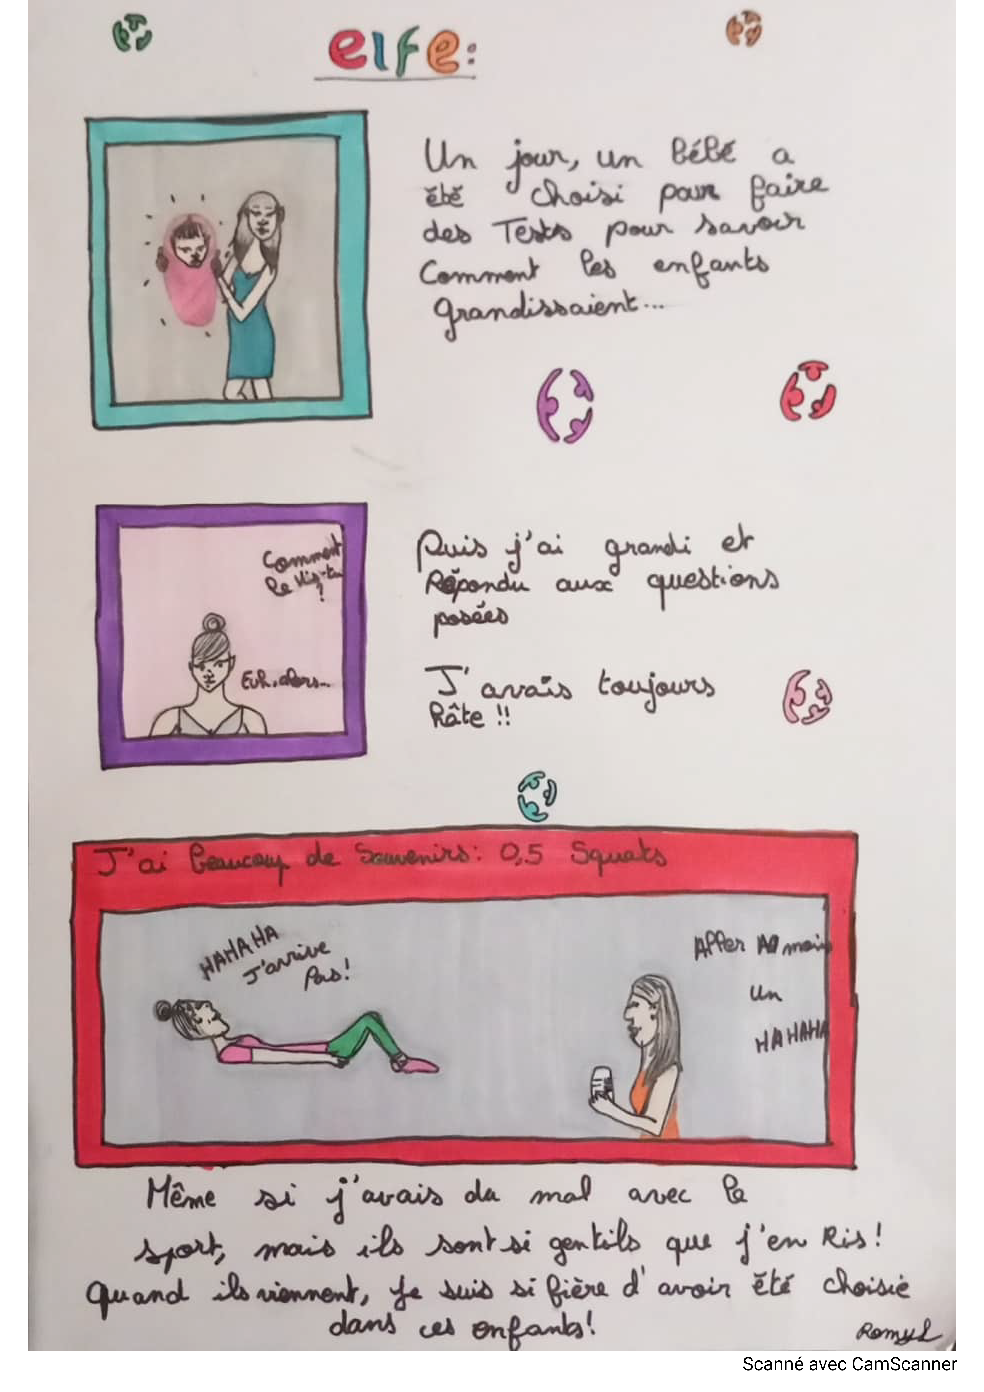 elfe:
Un jour, un bébé a
été choisi pour faire
des Tests pour savoir
Comment les enfants
grandissaient...
Comment
le vis-tu
?
Euh, alors...
Puis j'ai grandi et
Répondu aux questions
posées
J'avais toujours
hâte !!
J'ai beaucoup de Souvenirs: 0,5 Squats
HAHAHA
J'arrive
Pas!
Aller moins
un
HAHAHA
Même si j'avais du mal avec le
sport, mais ils sont si gentils que j'en Ris!
Quand ils viennent, je suis si fière d'avoir été choisie
dans ces enfants!
Romy L
Scanné avec CamScanner